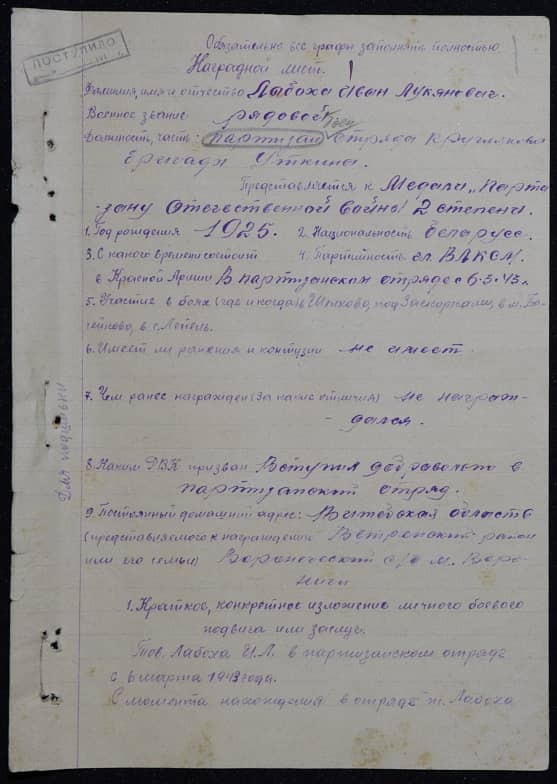 ПОСТУПИЛО
Обязательно все графы заполнять полностью
Наградной лист.
Фамилия, имя и отчество Лабоха Иван Лукянович.
Военное звание рядовой
Должность, часть: партизан отряда Кругликова
бригады Уткина.
Представляется к Медали „Парти
зану Отечественной войны 2 степени.
1. Год рождения 1925. 2. Национальность беларусс.
3. С какого времени состоит 4. Партийность чл. ВЛКСМ.
в Красной Армии В партизанском отряде с 6.3.43 г.
5. Участие в боях (где и когда) в под в м.
в г. Лепель.
6. Имеет ли ранения и контузии не имеет.
7. Чем ранее награжден (за какие отличия) не награж-
дался.
8. Каким РВК призван Вступил добравольно в
партизанский отряд.
9. Постоянный домашний адрес: Витебская область
(представляемого к награждению Ветринский район
или его семьи) Воронеческий с/с м. Воро-
ничи
1. Краткое, конкретное изложение личного боевого
подвига или заслуг.
Тов. Лабоха И.Л. в партизанском отряде
с 6 марта 1943 года.
С момента нахождения в отряде т. Лабоха
Для подшивки